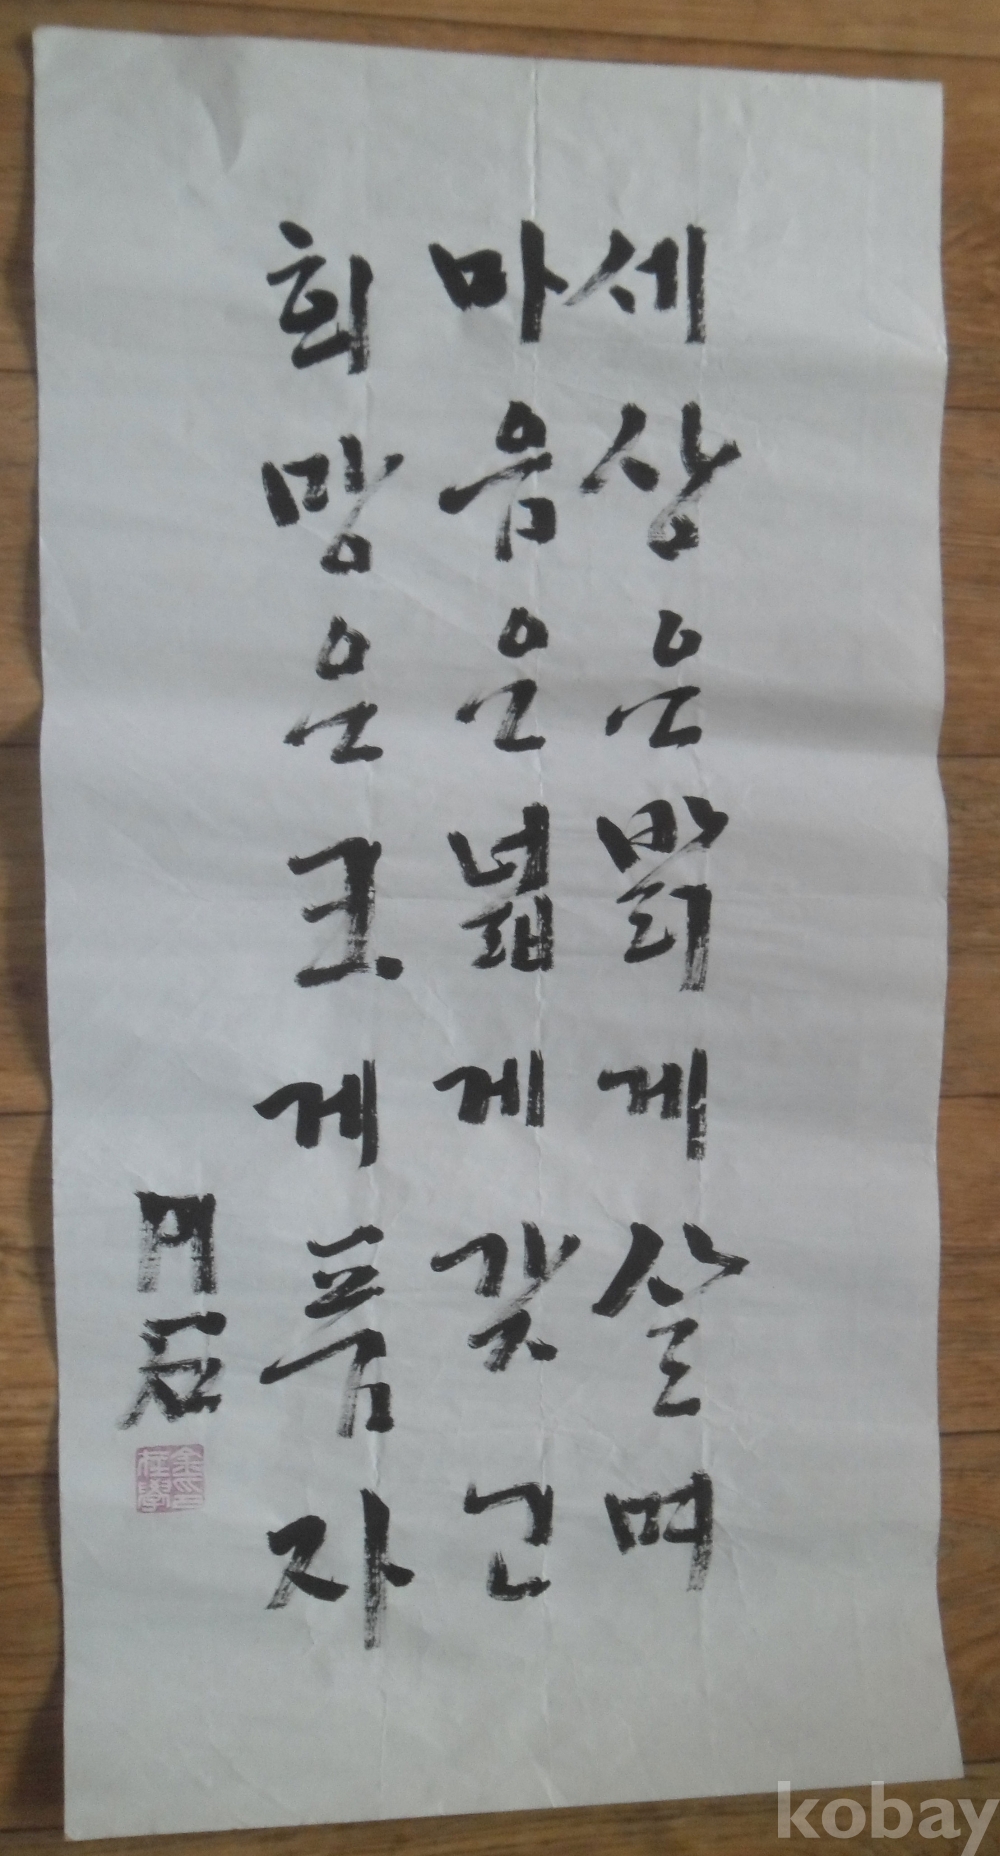 세상은밝게살며
마음은넓게갖고
희망은크게품자
石
kobay